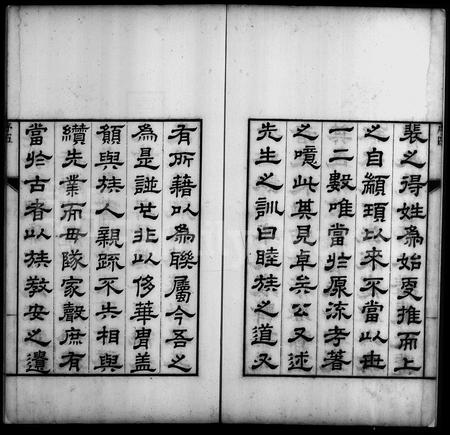 序四
裴之得姓為始更推而上
之自顓頊以來不當以世
一二數唯當於原流考著
之噫此其見卓矣公又述
先生之訓曰睦族之道又
有所藉以為聯屬今吾之
為是諩也非以侈華胄蓋
願與族人親疏不失相與
纘先業而毋隊家聲庶有
當於古者以族教安之遺
序五